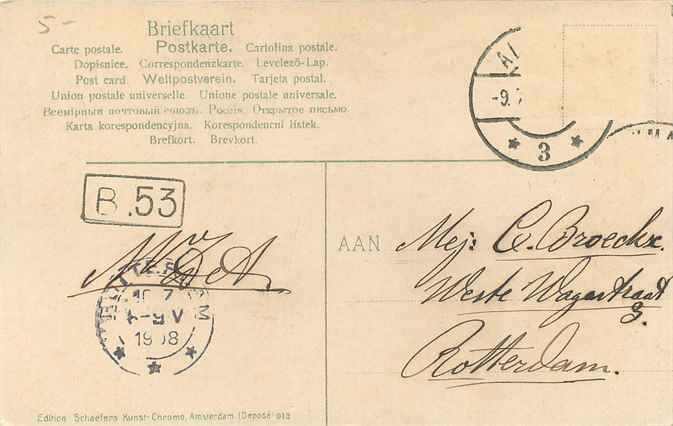 5-
Briefkaart
Carte postale. Postkarte. Cartolina postale.
Dopisnice. Correspondenzkarte. Levelező-Lap.
Post card. Weltpostverein. Tarjeta postal.
Union postale universelle. Unione postale universale.
Всемірный почтовый союзъ. Россія. Открытое письмо.
Karta korespondencyjna. Korespondenční lístek.
Brefkort. Brevkort.
-9.
3
B.53
1908
AAN
Mej: C. Broeckx.
Weste Wagestraat
3.
Rotterdam.
Edition Schaefers Kunst-Chromo, Amsterdam (Deposé) 013